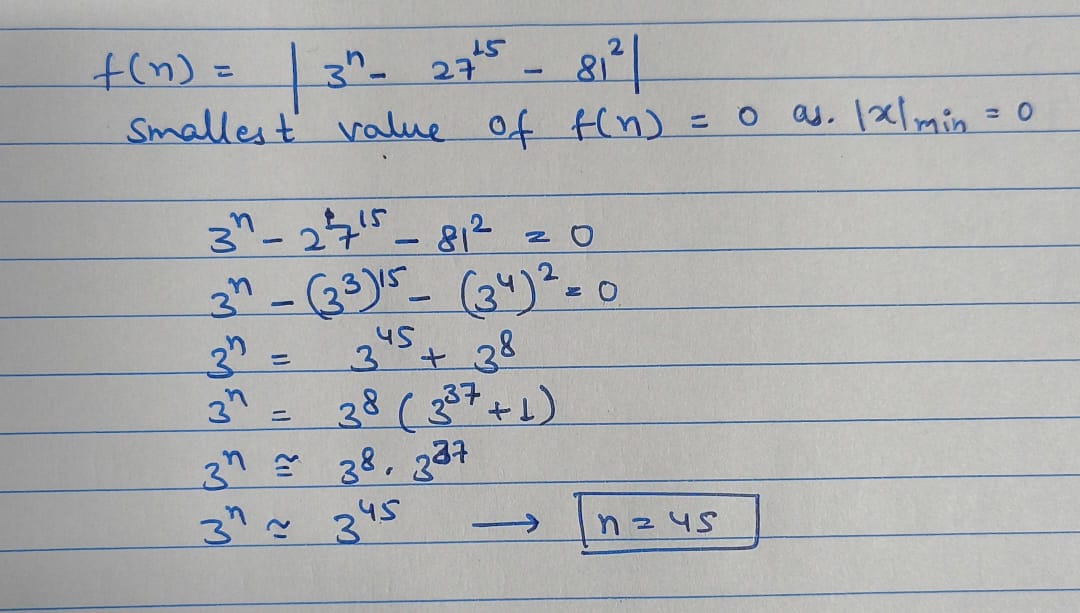 f(n) = | 3ⁿ - 27¹⁵ - 81² |
Smallest value of f(n) = 0 as. |x|min = 0
3ⁿ - 27¹⁵ - 81² = 0
3ⁿ - (3³)¹⁵ - (3⁴)² = 0
3ⁿ = 3⁴⁵ + 3⁸
3ⁿ = 3⁸ (3³⁷ + 1)
3ⁿ ≅ 3⁸. 3³⁷
3ⁿ ≈ 3⁴⁵ → n = 45